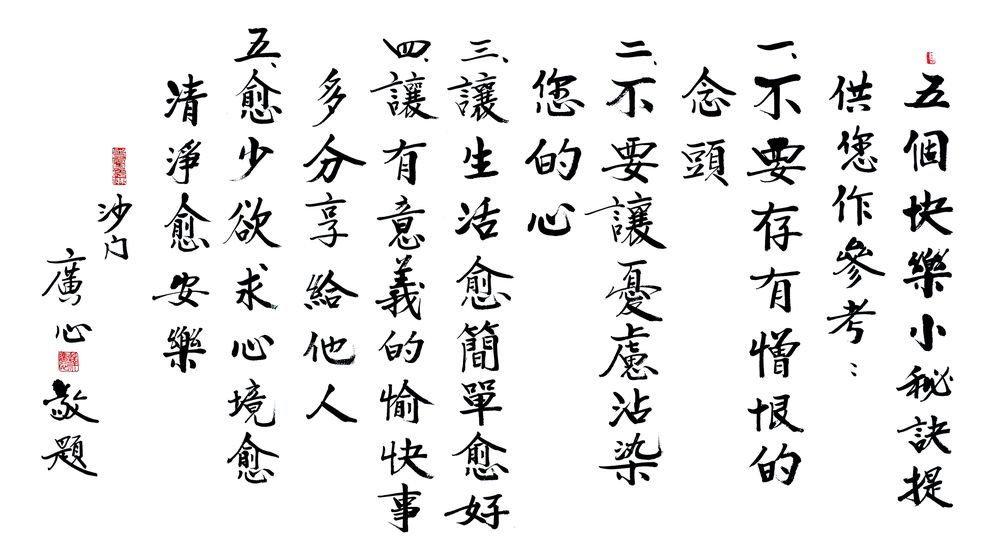 五個快樂小秘訣提
供您作參考：
一、不要存有憎恨的
念頭
二、不要讓憂慮沾染
您的心
三、讓生活愈簡單愈好
四、讓有意義的愉快事
多分享給他人
五、愈少欲求心境愈
清淨愈安樂
沙门
廣心敬題